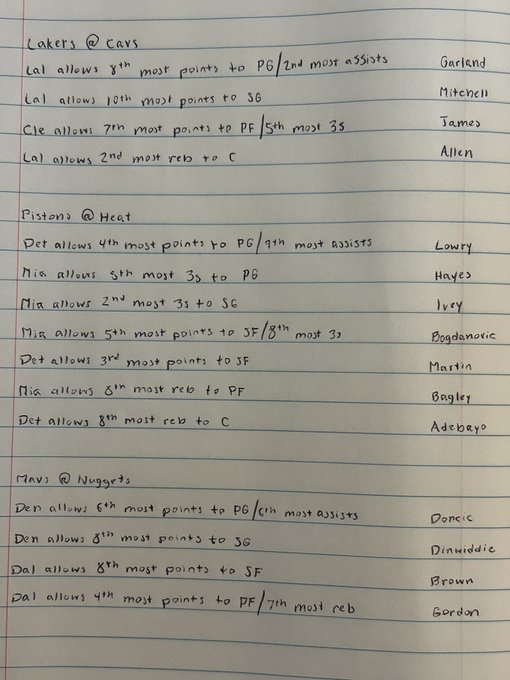 Lakers @ Cavs
Lal allows 8th most points to PG/2nd most assists Garland
Lal allows 10th most points to SG Mitchell
Cle allows 7th most points to PF/5th most 3s James
Lal allows 2nd most reb to C Allen
Pistons @ Heat
Det allows 4th most points to PG/9th most assists Lowry
Mia allows 5th most 3s to PG Hayes
Mia allows 2nd most 3s to SG Ivey
Mia allows 5th most points to SF/8th most 3s Bogdanovic
Det allows 3rd most points to SF Martin
Mia allows 8th most reb to PF Bagley
Det allows 8th most reb to C Adebayo
Mavs @ Nuggets
Den allows 6th most points to PG/6th most assists Doncic
Den allows 8th most points to SG Dinwiddie
Dal allows 8th most points to SF Brown
Dal allows 4th most points to PF/7th most reb Gordon